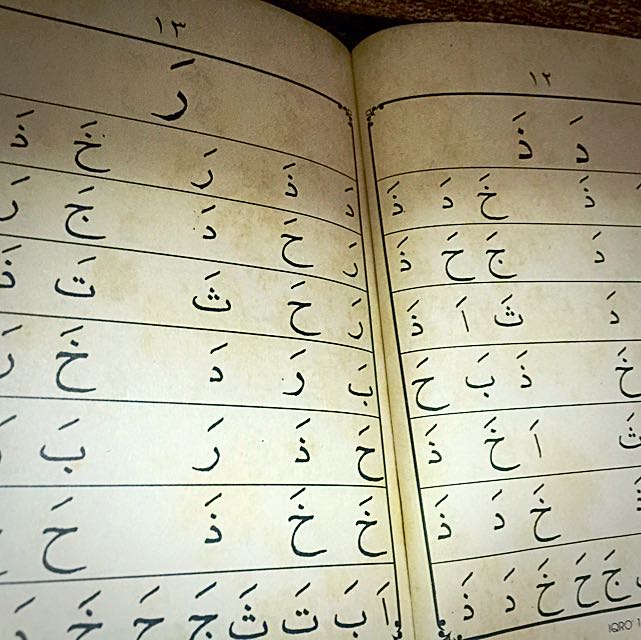 ١٢
دَ ذَ
ذَ خَ دَ ذَ
دَ جَ حَ ذَ
دَ ثَ اَ ذَ
خَ ذَ بَ حَ
ثَ اَ خَ ذَ
خَ دَ ذَ
جَ حَ خَ دَ ذَ
IQRO'
١٣
رَ
دَ ذَ رَ خَ ذَ
رَ حَ دَ جَ رَ
رَ حَ ثَ تَ ذَ
بَ رَ دَ خَ رَ
حَ ذَ رَ بَ
خَ خَ ذَ حَ
اَ بَ تَ ثَ جَ حَ خَ